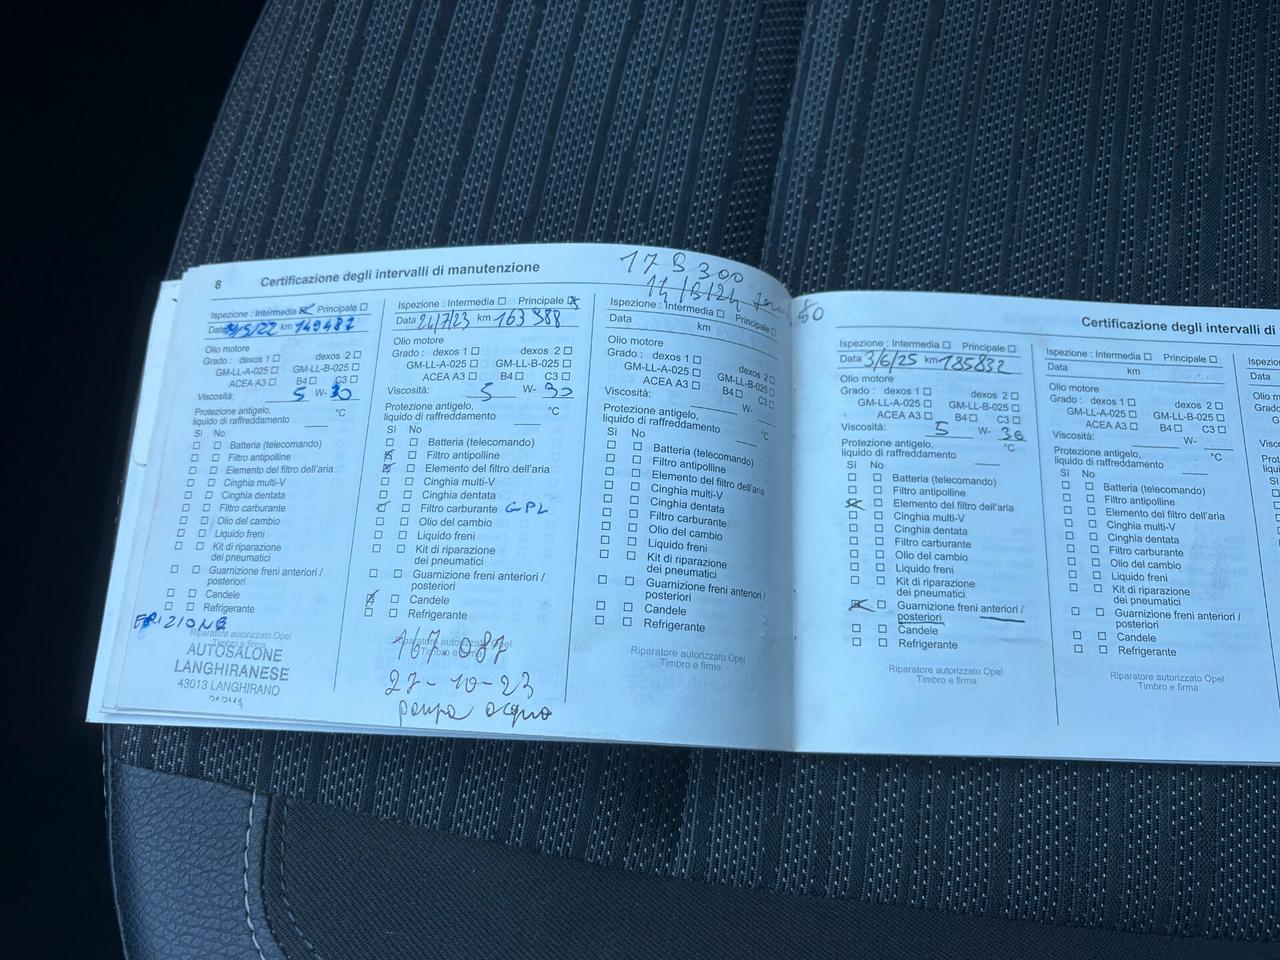 8 Certificazione degli intervalli di manutenzione
Ispezione : Intermedia Principale
Data 19/5/22 km 149487
Olio motore
Grado : dexos 1 dexos 2
GM-LL-A-025 GM-LL-B-025
ACEA A3 B4 C3
Viscosità: 5 W- 30
Protezione antigelo,
liquido di raffreddamento °C
Sì No
Batteria (telecomando)
Filtro antipolline
Elemento del filtro dell'aria
Cinghia multi-V
Cinghia dentata
Filtro carburante
Olio del cambio
Liquido freni
Kit di riparazione
dei pneumatici
Guarnizione freni anteriori /
posteriori
Candele
Refrigerante
FRIZIONE
Riparatore autorizzato Opel
Timbro e firma
AUTOSALONE
LANGHIRANESE
43013 LANGHIRANO
PARMA
Ispezione : Intermedia Principale
Data 24/7/23 km 163 988
Olio motore
Grado : dexos 1 dexos 2
GM-LL-A-025 GM-LL-B-025
ACEA A3 B4 C3
Viscosità: 5 W- 30
Protezione antigelo,
liquido di raffreddamento °C
Sì No
Batteria (telecomando)
Filtro antipolline
Elemento del filtro dell'aria
Cinghia multi-V
Cinghia dentata
Filtro carburante GPL
Olio del cambio
Liquido freni
Kit di riparazione
dei pneumatici
Guarnizione freni anteriori /
posteriori
Candele
Refrigerante
Riparatore autorizzato Opel
Timbro e firma
167 087
27-10-23
pompa acqua
Ispezione : Intermedia Principale
Data km
Olio motore
Grado : dexos 1 dexos 2
GM-LL-A-025 GM-LL-B-025
ACEA A3 B4 C3
Viscosità: W-
Protezione antigelo,
liquido di raffreddamento °C
Sì No
Batteria (telecomando)
Filtro antipolline
Elemento del filtro dell'aria
Cinghia multi-V
Cinghia dentata
Filtro carburante
Olio del cambio
Liquido freni
Kit di riparazione
dei pneumatici
Guarnizione freni anteriori /
posteriori
Candele
Refrigerante
Riparatore autorizzato Opel
Timbro e firma
Certificazione degli intervalli di
Ispezione : Intermedia Principale
Data 3/6/25 km 185832
Olio motore
Grado : dexos 1 dexos 2
GM-LL-A-025 GM-LL-B-025
ACEA A3 B4 C3
Viscosità: 5 W- 30
Protezione antigelo,
liquido di raffreddamento °C
Sì No
Batteria (telecomando)
Filtro antipolline
Elemento del filtro dell'aria
Cinghia multi-V
Cinghia dentata
Filtro carburante
Olio del cambio
Liquido freni
Kit di riparazione
dei pneumatici
Guarnizione freni anteriori /
posteriori
Candele
Refrigerante
Riparatore autorizzato Opel
Timbro e firma
Ispezione : Intermedia Principale
Data km
Olio motore
Grado : dexos 1 dexos 2
GM-LL-A-025 GM-LL-B-025
ACEA A3 B4 C3
Viscosità: W-
Protezione antigelo,
liquido di raffreddamento °C
Sì No
Batteria (telecomando)
Filtro antipolline
Elemento del filtro dell'aria
Cinghia multi-V
Cinghia dentata
Filtro carburante
Olio del cambio
Liquido freni
Kit di riparazione
dei pneumatici
Guarnizione freni anteriori /
posteriori
Candele
Refrigerante
Riparatore autorizzato Opel
Timbro e firma
Data
Sì